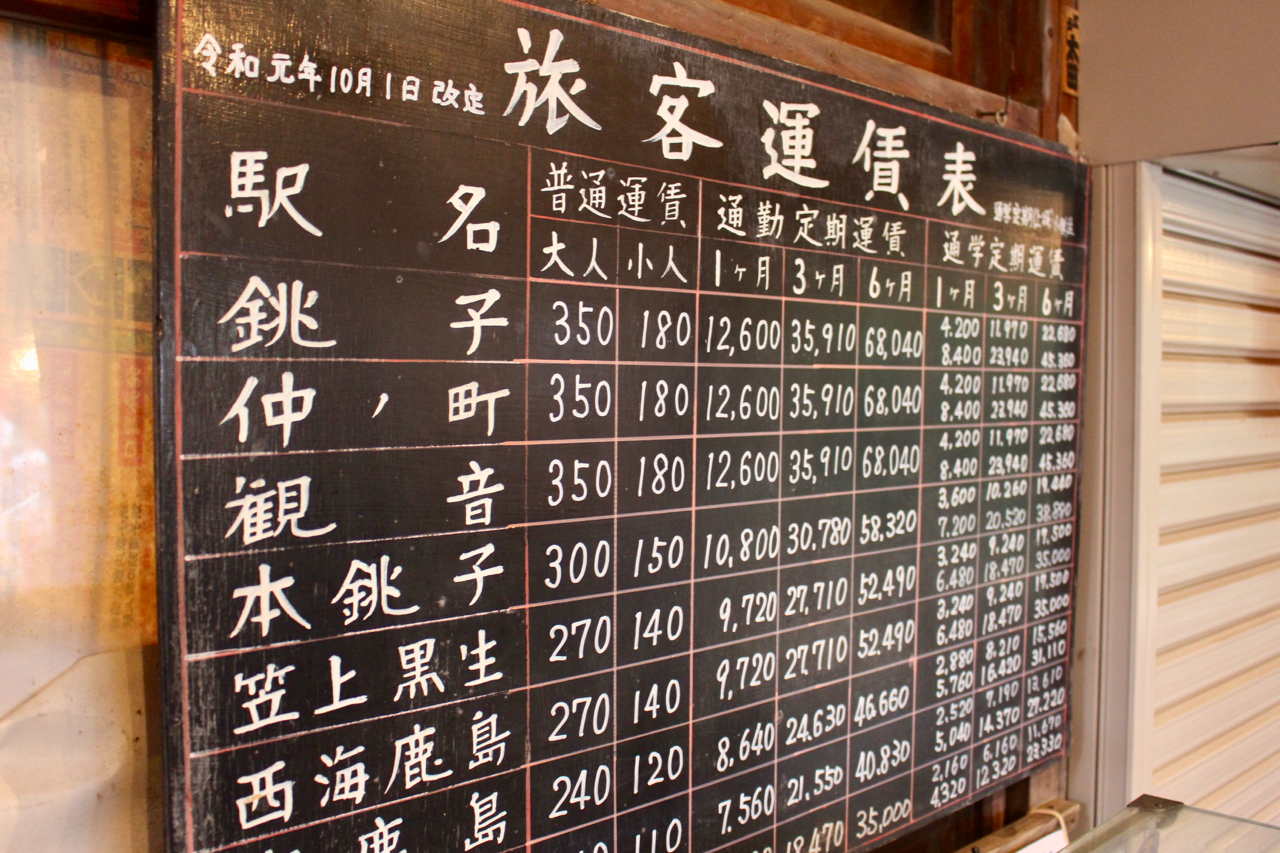 令和元年10月1日改定 旅客運賃表
駅名 普通運賃 通勤定期運賃 通学定期運賃
大人 小人 1ヶ月 3ヶ月 6ヶ月 1ヶ月 3ヶ月 6ヶ月
銚子 350 180 12,600 35,910 68,040 4.200 11.970 22,680
8.400 23,940 45,360
仲ノ町 350 180 12,600 35,910 68,040 4,200 11,970 22,680
8,400 23,940 45,360
観音 350 180 12,600 35,910 68,040 4,200 11,970 22,680
8.400 23,940 45,360
本銚子 300 150 10,800 30,780 58,320 3,600 10.260 19,440
7,200 20,520 38,880
笠上黒生 270 140 9,720 27,710 52,490 3,240 9.240 17,500
6.480 18.470 35,000
西海鹿島 270 140 9,720 27,710 52,490 3,240 9.240 17,500
6,480 18.470 35,000
鹿島 240 120 8,640 24,630 46,660 2,880 8,210 15,560
5,760 16,420 31,110
110 7,560 21,550 40,830 2,520 7,190 13,610
5,040 14,370 27,220
18,470 35,000 2,160 6,160 11,670
4,320 12,320 23,330